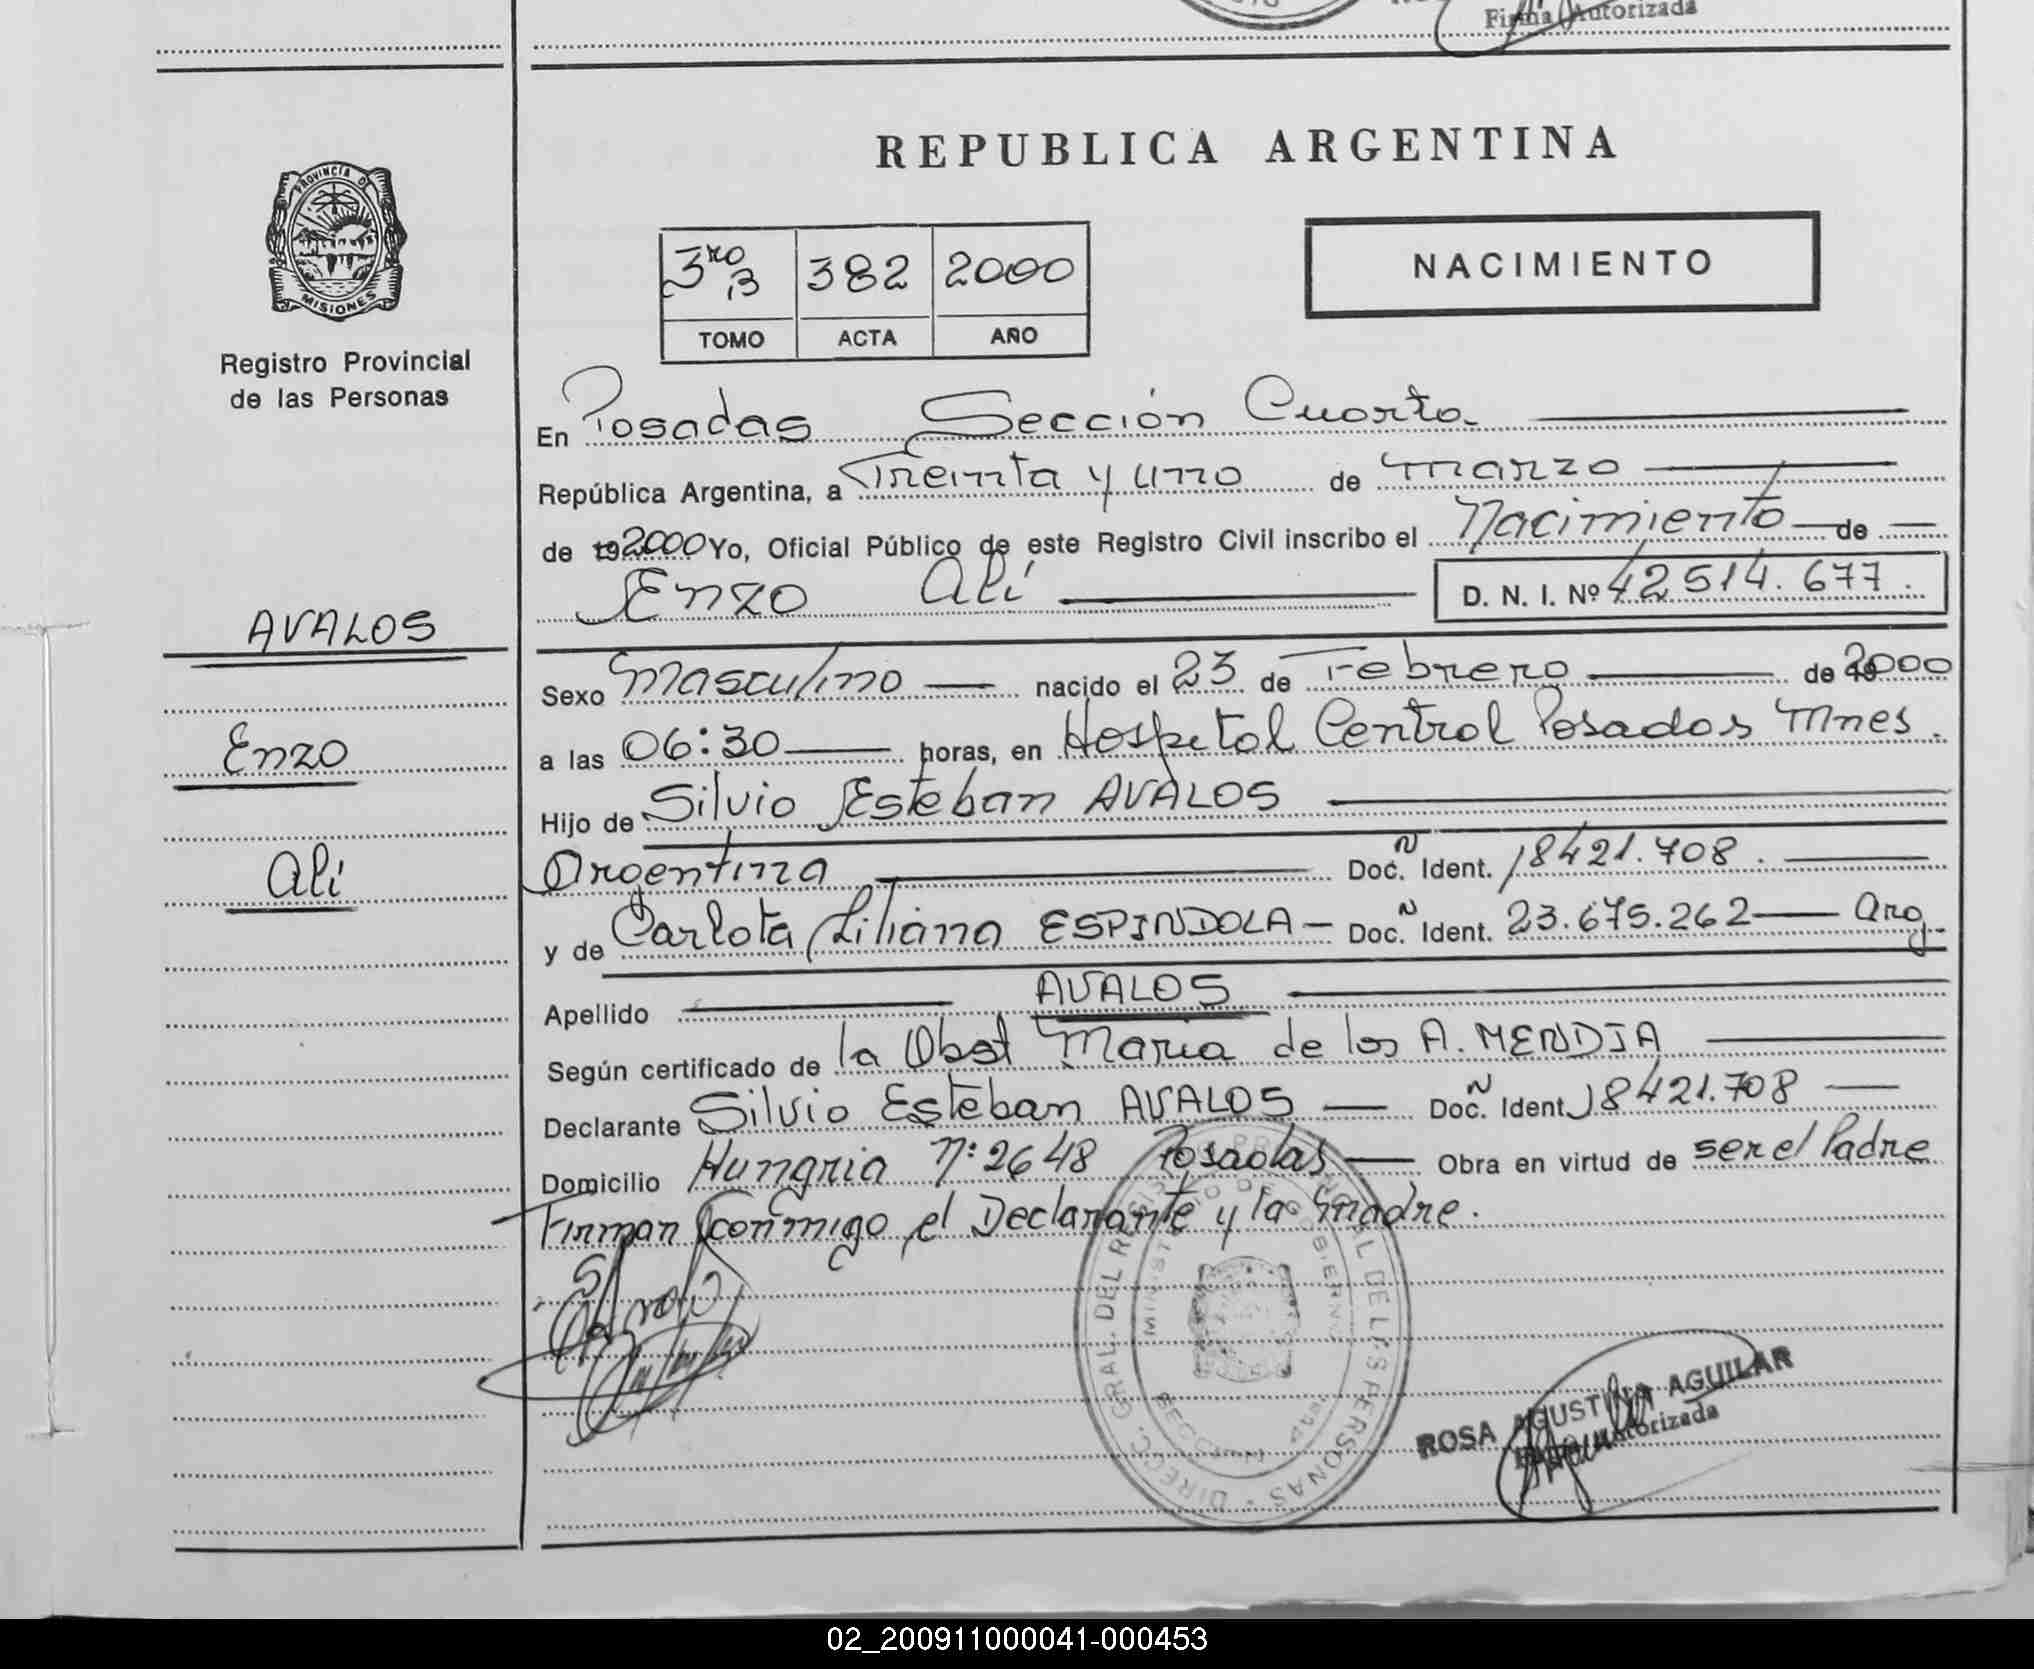 Firma Autorizada
REPUBLICA ARGENTINA
PROVINCIA DE
MISIONES
Registro Provincial
de las Personas
3ro 3 382 2000
TOMO ACTA AÑO
NACIMIENTO
En Posadas Sección Cuarta
República Argentina, a Treinta y uno de marzo
de 192000 Yo, Oficial Público de este Registro Civil inscribo el Nacimiento de
Enzo Alí D. N. I. Nº 42.514.677.
AVALOS
Enzo
Alí
Sexo masculino nacido el 23 de Febrero de 192000
a las 06:30 horas, en Hospital Central Posadas Mnes.
Hijo de Silvio Esteban AVALOS
Argentina Doc. Ñ Ident. 18421.708.
y de Carlota Liliana ESPINDOLA - Doc. Ñ Ident. 23.675.262 Arg.
Apellido AVALOS
Según certificado de la Obst Maria de los A. MENDIA
Declarante Silvio Esteban AVALOS Doc. Ñ Ident 18421.708
Domicilio Hungria Nº 2648 Posadas Obra en virtud de ser el Padre
Firman conmigo el Declarante y la madre.
DIREC. GRAL. DEL REGIST. PROVINCIAL DE LAS PERSONAS
MINISTERIO DE GOBIERNO
SECCION
ROSA AGUSTINA AGUILAR
Firma Autorizada
02_200911000041-000453